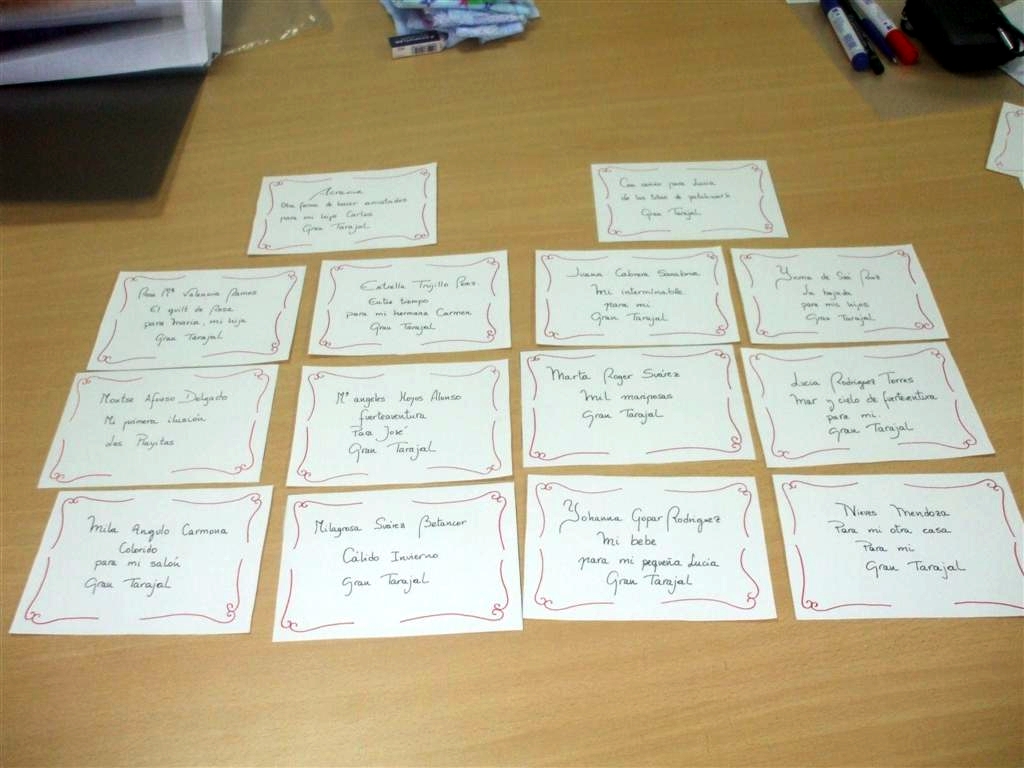 Acracia
Otra forma de hacer amistades
para mi hijo Carlos
Gran Tarajal
Con cariño para Lucia
de las titas de patchwork
Gran Tarajal
Rosa Mª Valencia Ramos
El quilt de Rosa
para maría, mi hija
Gran Tarajal
Estrella Trujillo Pérez
Entre tiempo
para mi hermana Carmen
Gran Tarajal
Juana Cabrera Sanabria
Mi interminable
para mi
Gran Tarajal
de
La bajada
para mis hijos
Gran Tarajal
Montse Afonso Delgado
Mi primera ilusión
Las Playitas
Mª angeles Hoyos Alonso
fuerteaventura
Para José
Gran Tarajal
Marta Roger Suárez
Mil mariposas
Gran Tarajal
Lucia Rodriguez Torres
Mar y cielo de fuerteventura
para mi.
Gran Tarajal
Mila Angulo Carmona
Colorido
para mi salón
Gran Tarajal
Milagrosa Suárez Betancor
Cálido Invierno
Gran Tarajal
Yohanna Gopar Rodriguez
Mi bebe
para mi pequeña Lucia
Gran Tarajal
Nieves Mendoza
Para mi otra casa.
Para mi
Gran Tarajal